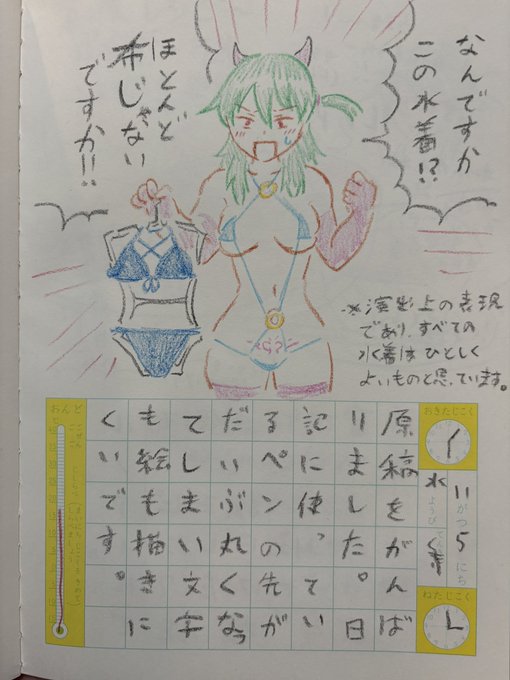 なんですか
この水着!?
ほとんど
布じゃない
ですか!!
※演出上の表現
であり、すべての
水着はひとしく
よいものと思っています。
おきたじこく
11がつ5にち
水ようび
ねたじこく
原稿をがんば
りました。日
記に使ってい
るペンの先が
だいぶ丸くなっ
てしまい文字
も絵も描きに
くいです。
おんど